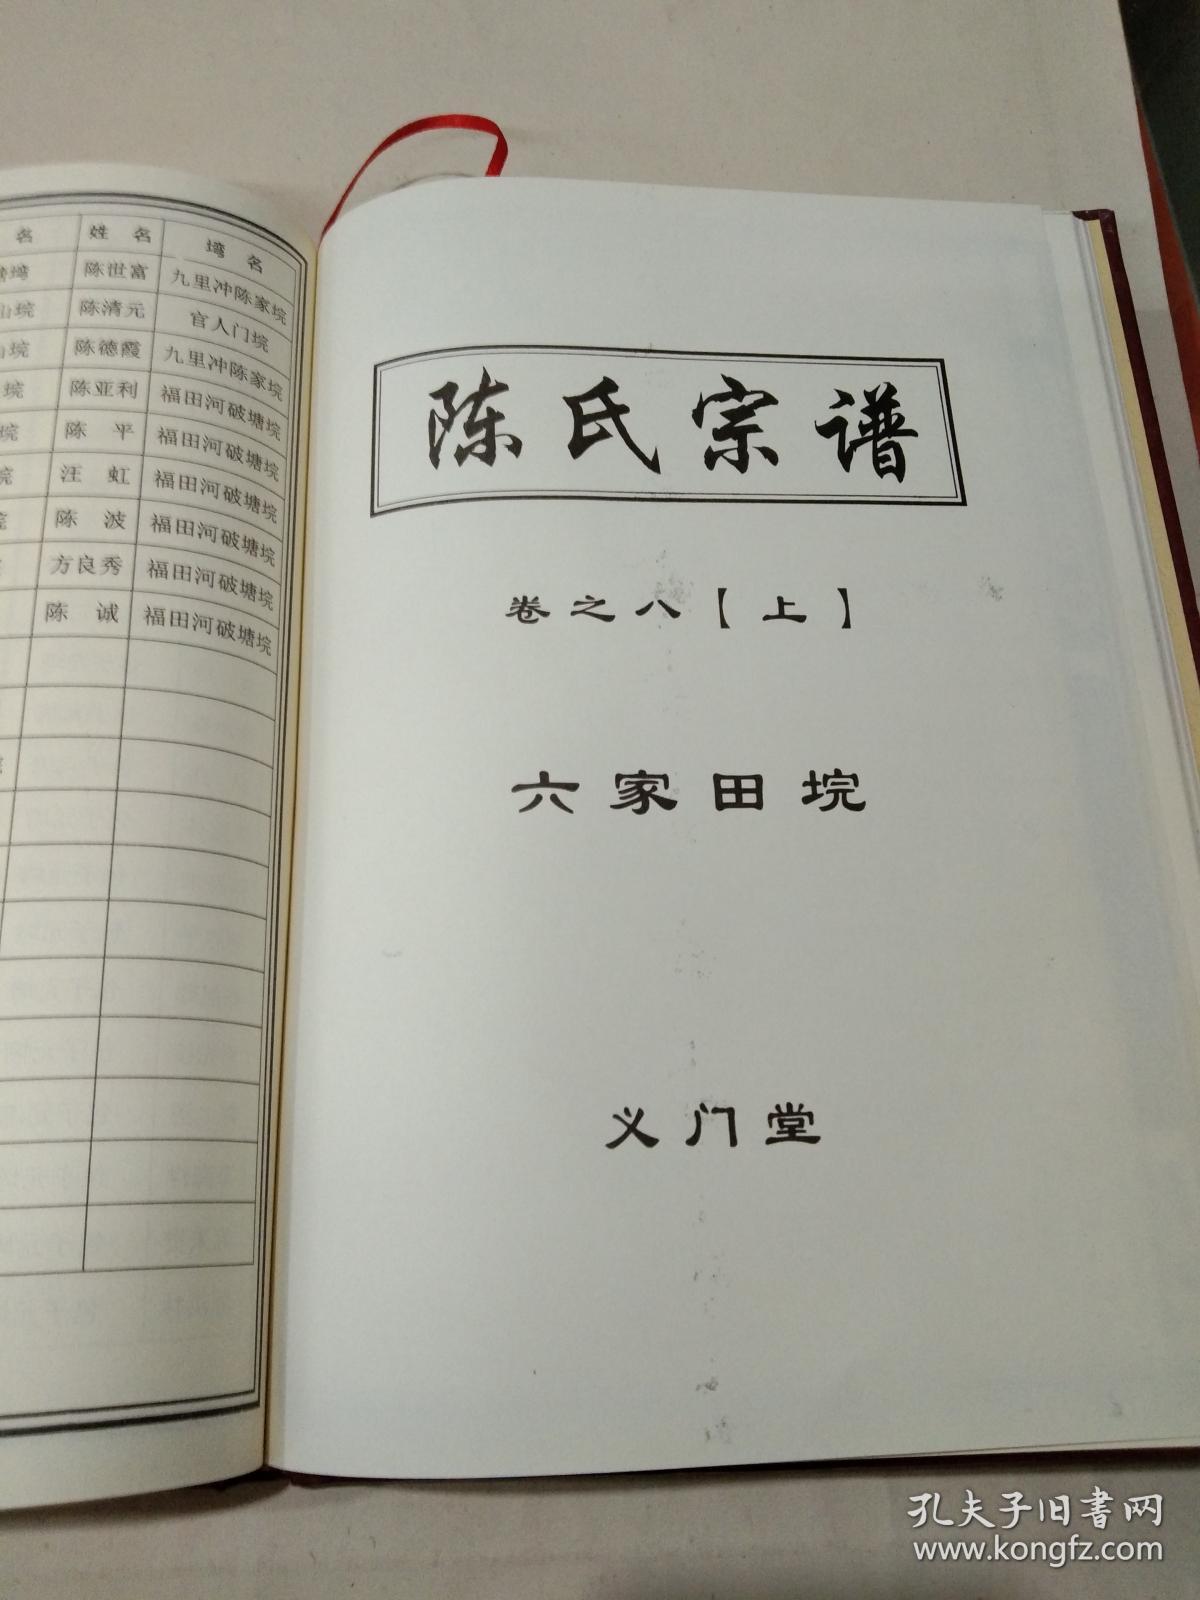 名 姓名 湾名
塘塆 陈世富 九里冲陈家垸
山垸 陈清元 官人门垸
垸 陈德霞 九里冲陈家垸
垸 陈亚利 福田河破塘垸
垸 陈平 福田河破塘垸
垸 汪虹 福田河破塘垸
陈波 福田河破塘垸
方良秀 福田河破塘垸
陈诚 福田河破塘垸
陈氏宗谱
卷之八【上】
六家田垸
义门堂
孔夫子旧书网
www.kongfz.com